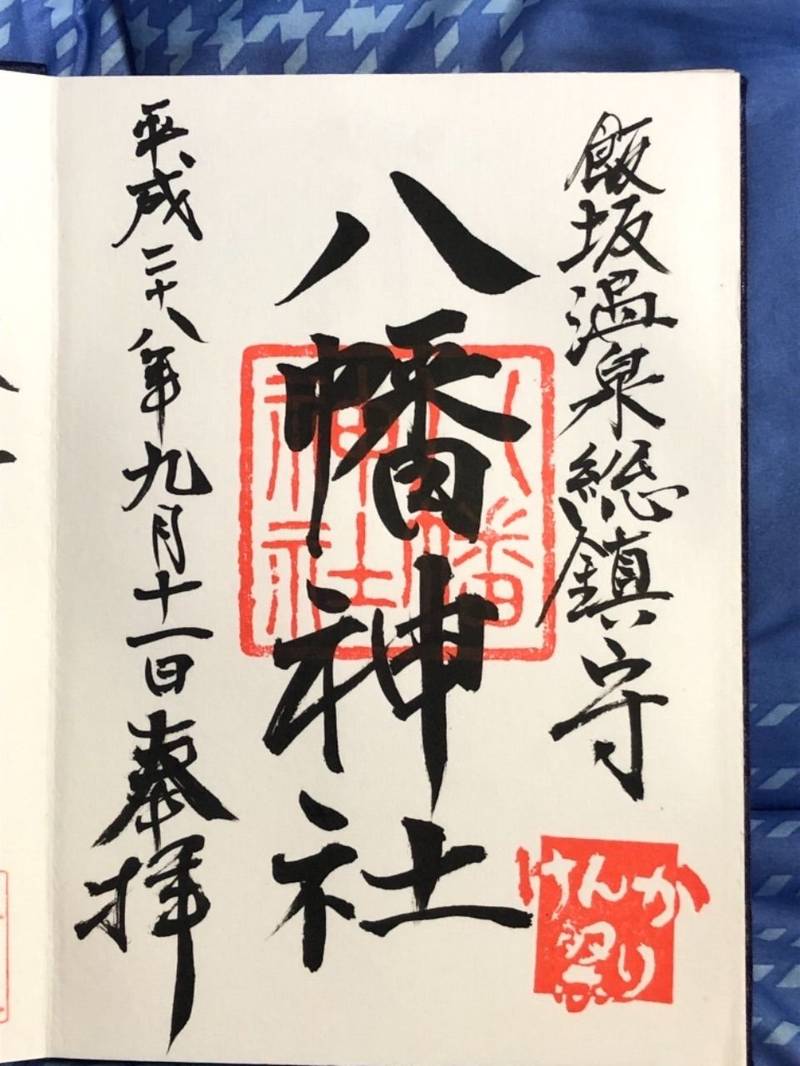 飯坂温泉総鎮守
けんか
祭り
八幡神社
八幡
神社
平成二十八年九月十一日奉拝